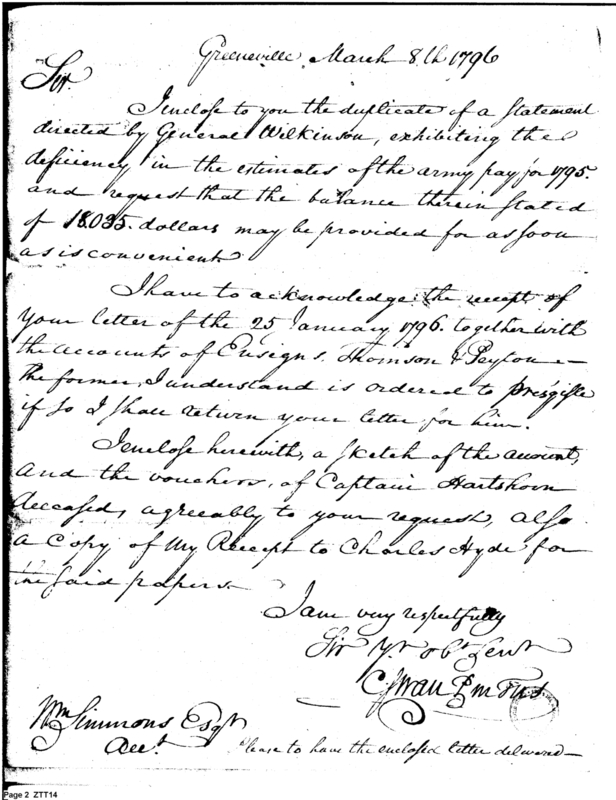 Greeneville March 8th 1796
Sir.
I enclose to you the duplicate of a statement
directed by General Wilkinson, exhibiting the
deficiency in the estimates of the army pay for 1795.
and request that the balance therein stated
of 18.035. dollars may be provided for as soon
as is convenient
I have to acknowledge the receipt of
your letter of the 25 January 1796. together with
the accounts of Ensigns. Thomson & Peyton —
the former, I understand is ordered to Presqisle
if so I shall return your letter for him.
I enclose herewith, a sketch of the amount,
and the vouchers, of Captain Hartshorn
deceased, agreeably to your request, also
a Copy of My Receipt to Charles Hyde for
the said papers
I am very respectfully
Sir Yr obt Servt
C Swan P M T U S
Wm Simmons Esqr
Acct.
Please to have the enclosed letter delivered —
Page 2 ZTT14